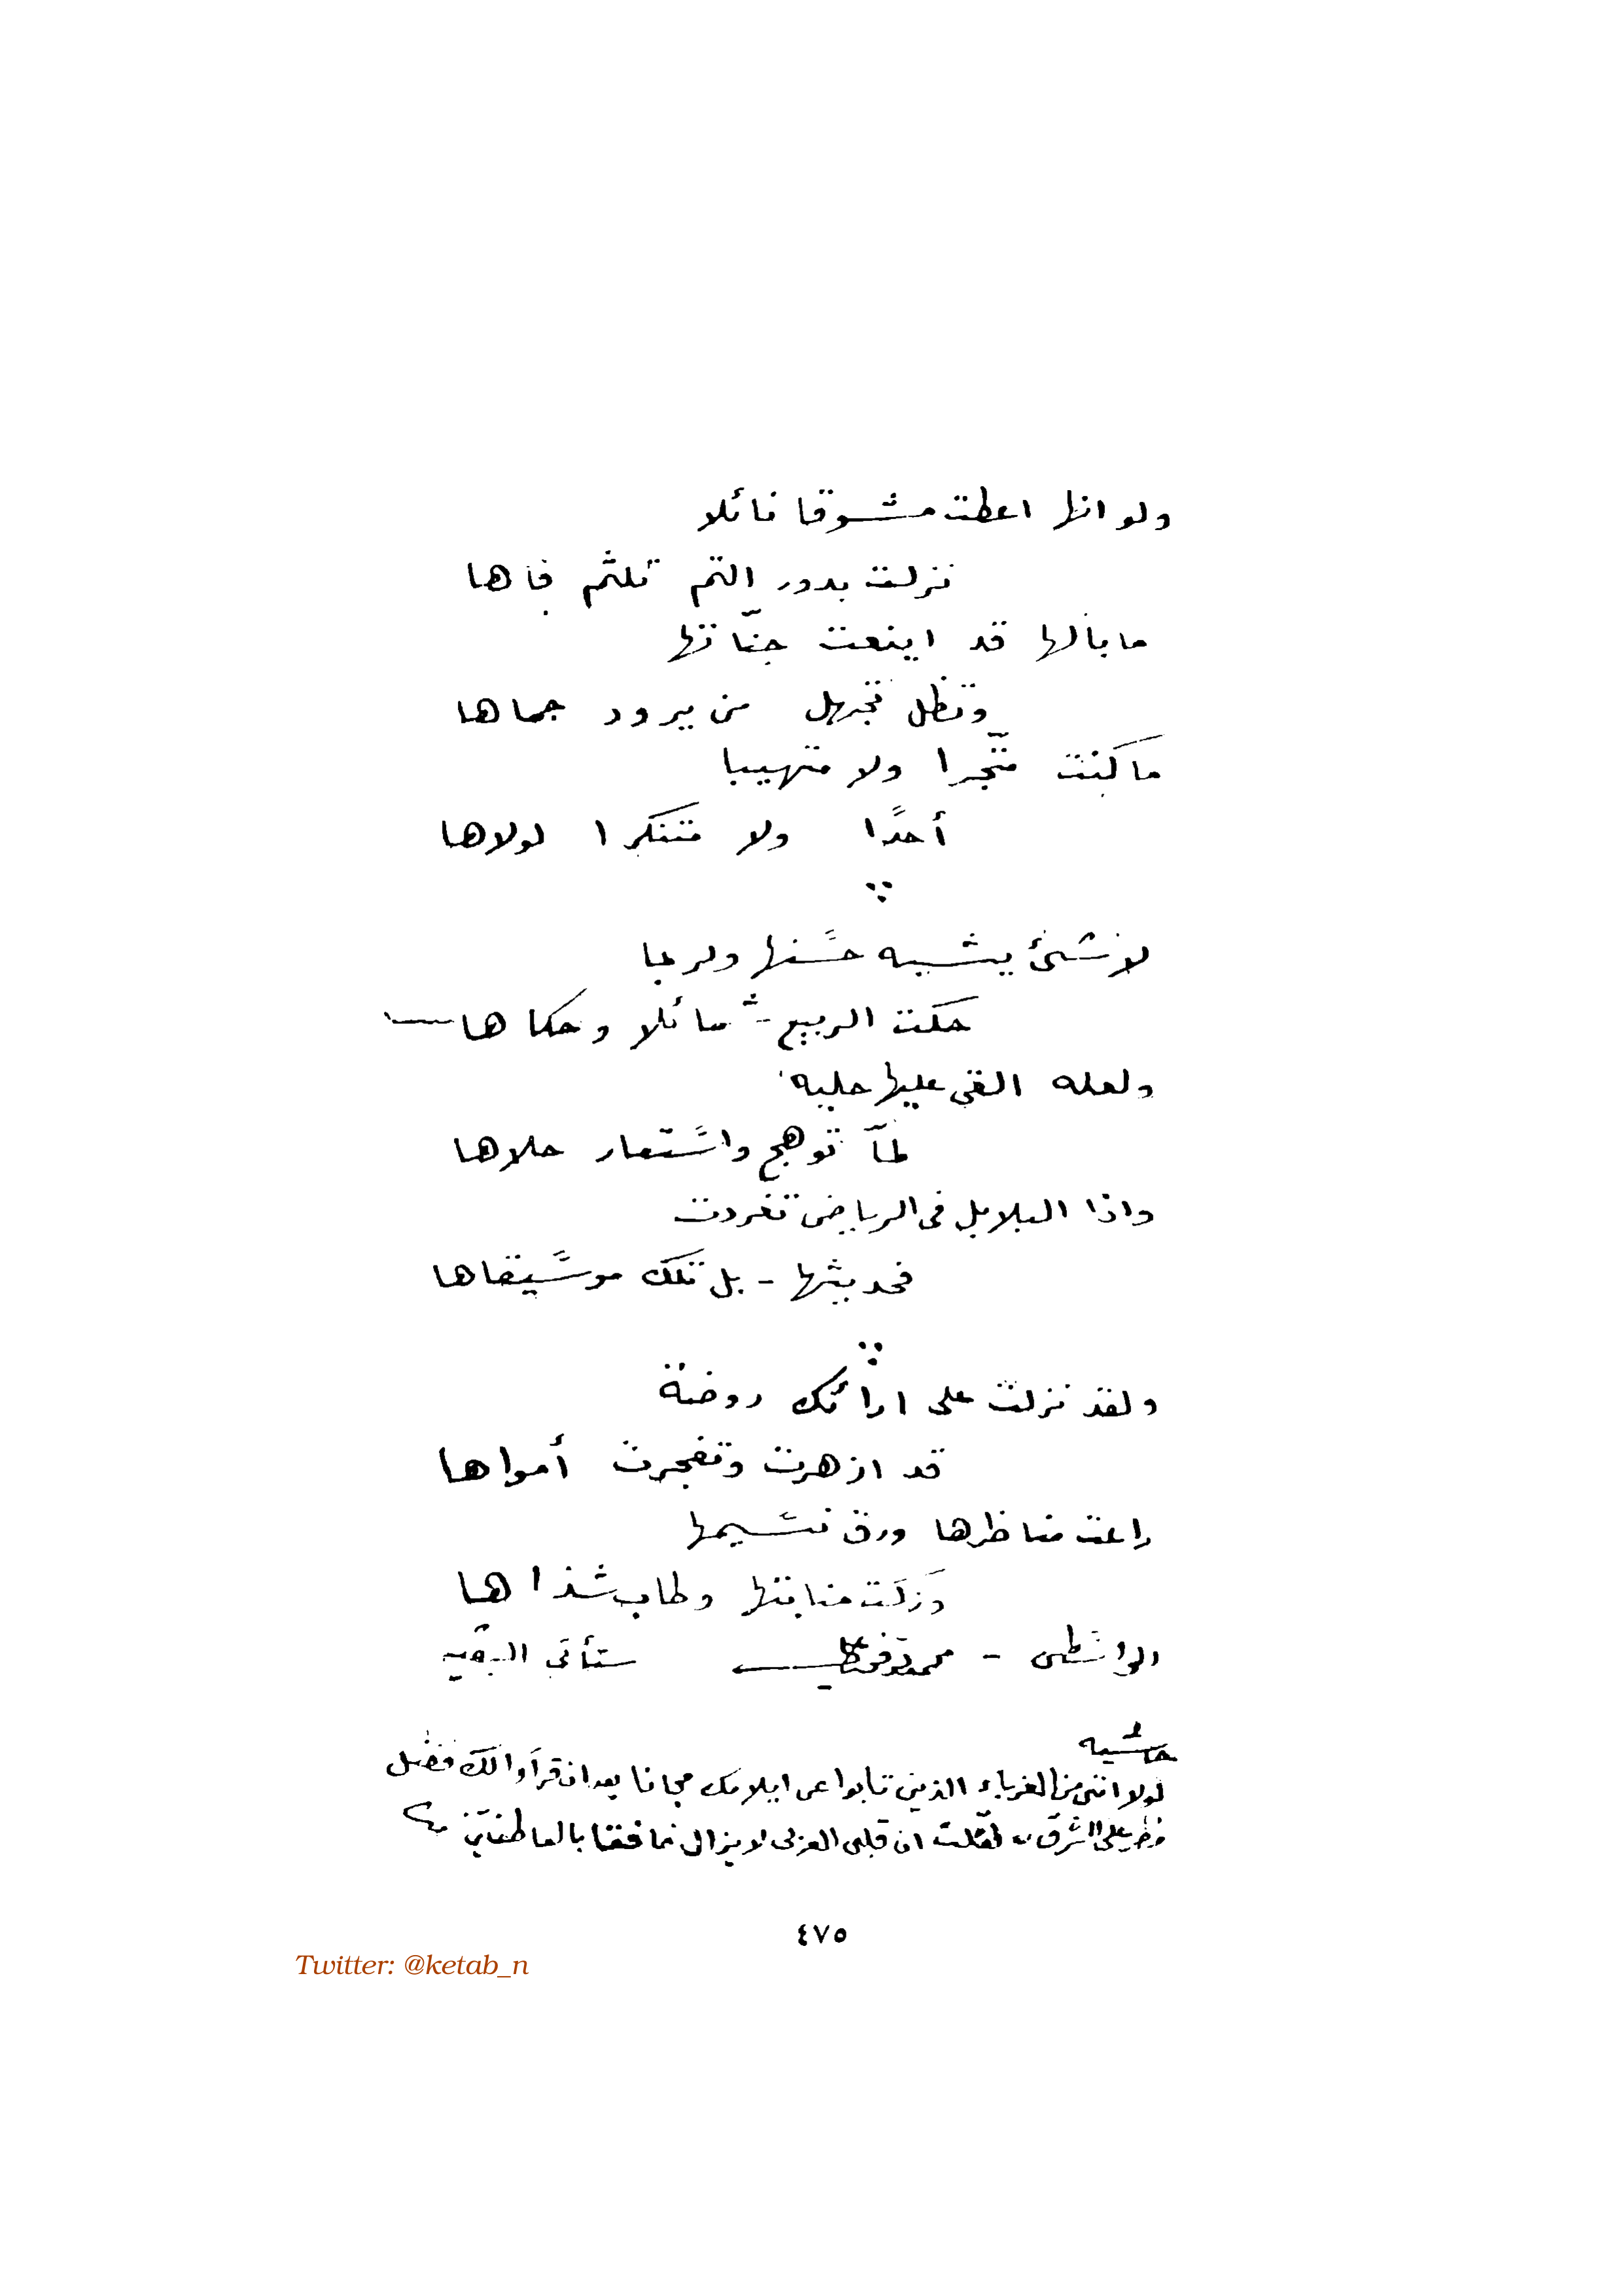 ولو انها اعطت مشوقا نائلا
نزلت بدور التم تلثم فاها
ما بالها قد اينعت جنّاتها
وتظل تجهل من يرود حماها
ما كنت متّجرا ولا متهيبا
أحدًا ولا متنكرا لولاها
لا شئ يشبه حسنها ولربما
حكت الربيع شمائلا وحكاها
ولعله القى عليها حليه
لمّا توهج واستعار حلاها
واذا البلابل فى الرياض تغردت
فحديثها - بل تلك موسيقاها
ولقد نزلت على ارائك روضة
قد ازهرت وتفجرت أمواها
راعت مناظرها ورق نسيمها
وَزكَت منابتها وطاب شذاها
الواسطى - محمد ستأتى البقيه
حاشيه
لولا اننى من الغرباء الذين تابوا عن ايلامك مجانا بعد ان قرأوا لك فضل
على الشرق لقلت ان قلبى العربى لا يزال خافقا بالعاطفتين
٤٧٥
Twitter: @ketab_n